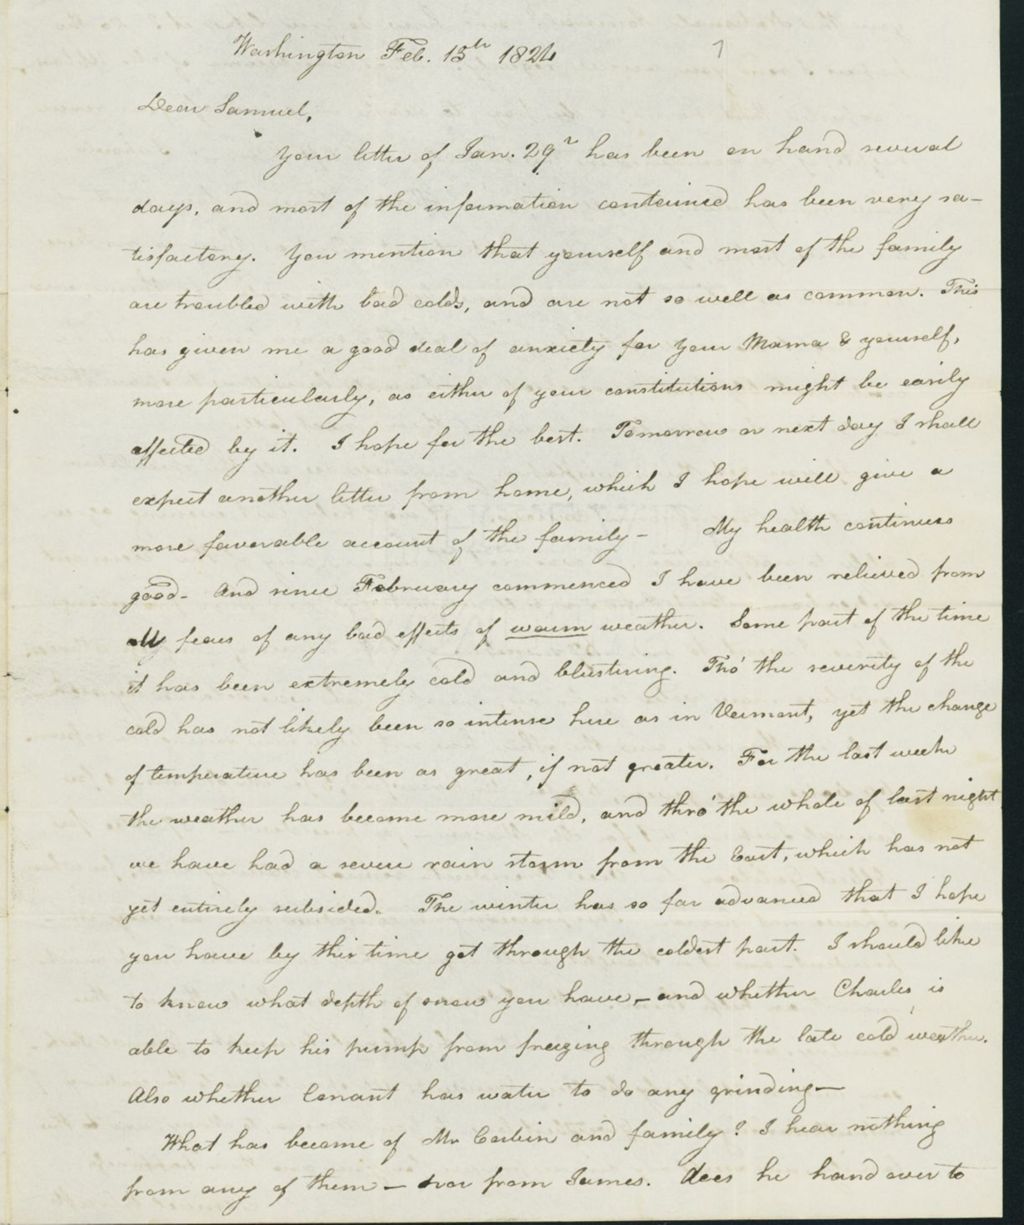 Washington Feb. 13th 1824
7
Dear Samuel,
Your letter of Jan. 29th has been on hand several
days, and most of the information contained has been very sa-
tisfactory. You mention that yourself and most of the family
are troubled with bad colds, and are not so well as common. This
has given me a good deal of anxiety for your Mama & yourself,
more particularly, as either of your constitutions might be easily
affected by it. I hope for the best. Tomorrow or next day I shall
expect another letter from home, which I hope will give a
more favorable account of the family - My health continues
good - And since February commenced I have been relieved from
My fears of any bad effects of warm weather. Some part of the time
it has been extremely cold and blustring. Tho' the severity of the
cold has not likely been so intense here as in Vermont, yet the change
of temperature has been as great, if not greater. For the last week
the weather has become more mild, and thro' the whole of last night
we have had a severe rain storm from the East, which has not
yet entirely subsided. The winter has so far advanced that I hope
you have by this time got through the coldest part. I should like
to know what depth of snow you have, - and whether Charles is
able to keep his pump from freezing through the late cold weather.
Also whether Conant has water to do any grinding -
What has become of Mr Corbin and family? I hear nothing
from any of them - nor from James. Does he hand over to